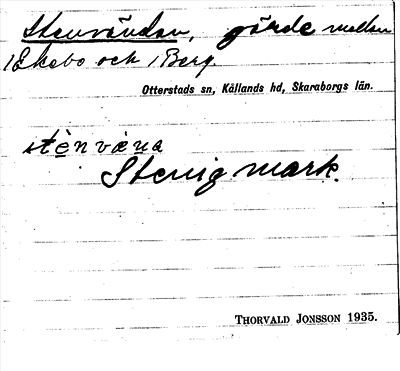 Stenvändan, gärde mellan
1 Ekebo och 1 Berg.
Otterstads sn, Kållands hd, Skaraborgs län.
stènvæna
Stenig mark.
THORVALD JONSSON 1935.